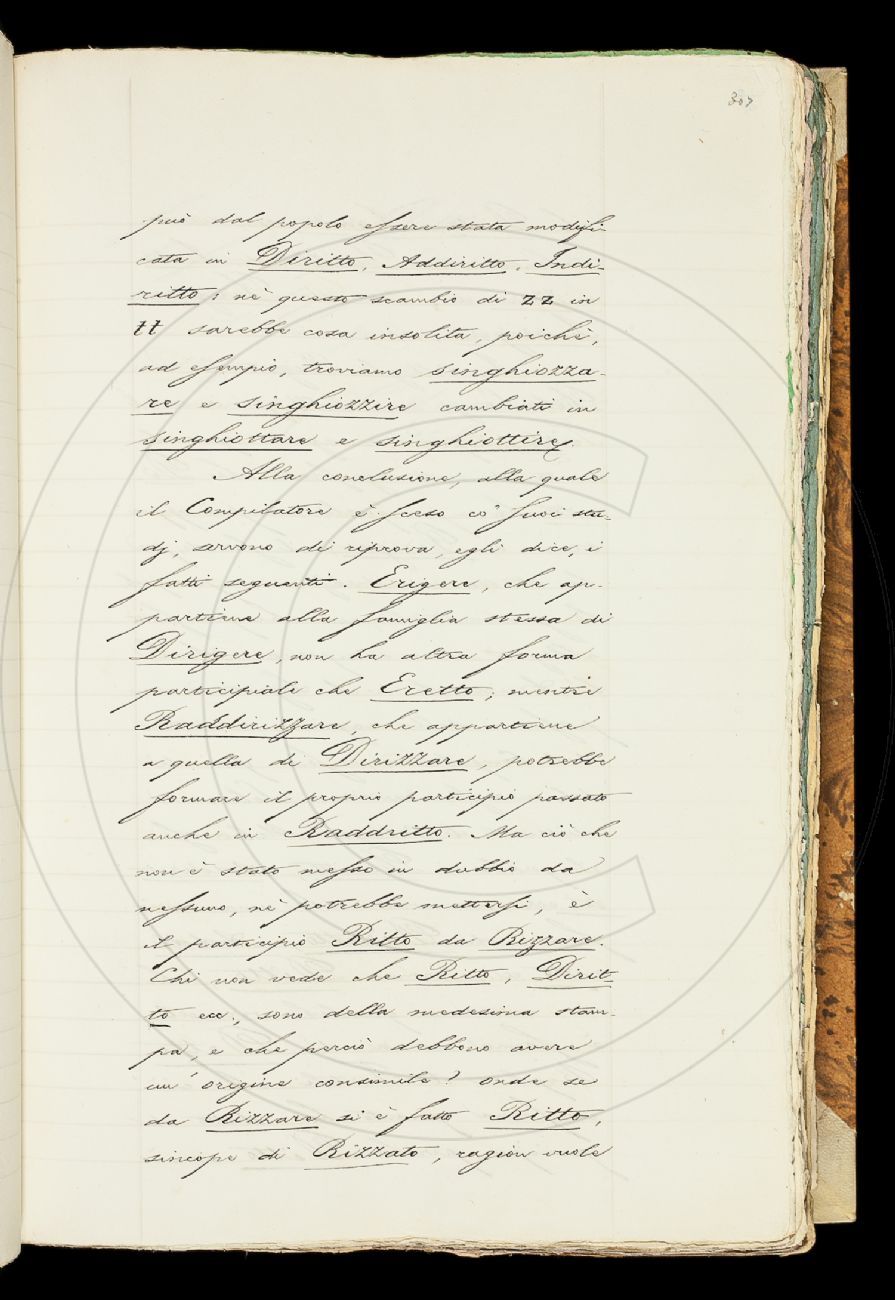 307
può dal popolo essere stata modifi-
cata in Diritto, Addiritto, Indi-
ritto; nè questo scambio di zz in
tt sarebbe cosa insolita, poichè,
ad esempio, troviamo singhiozza-
re e singhiozzire cambiati in
singhiottare e singhiottire.
Alla conclusione, alla quale
il Compilatore è sceso co' suoi stu-
dj, servono di riprova, egli dice, i
fatti seguenti. Erigere, che ap-
partiene alla famiglia stessa di
Dirigere, non ha altra forma
participiale che Eretto; mentre
Raddirizzare, che appartiene
a quella di Dirizzare, potrebbe
formare il proprio participio passato
anche in Raddritto. Ma ciò che
non è stato messo in dubbio da
nessuno, nè potrebbe mettersi, è
il participio Ritto da Rizzare.
Chi non vede che Ritto, Dirit-
to ecc., sono della medesima stam-
pa, e che perciò debbono avere
un' origine consimile? onde se
da Rizzare si è fatto Ritto,
sincope di Rizzato, ragion vuole